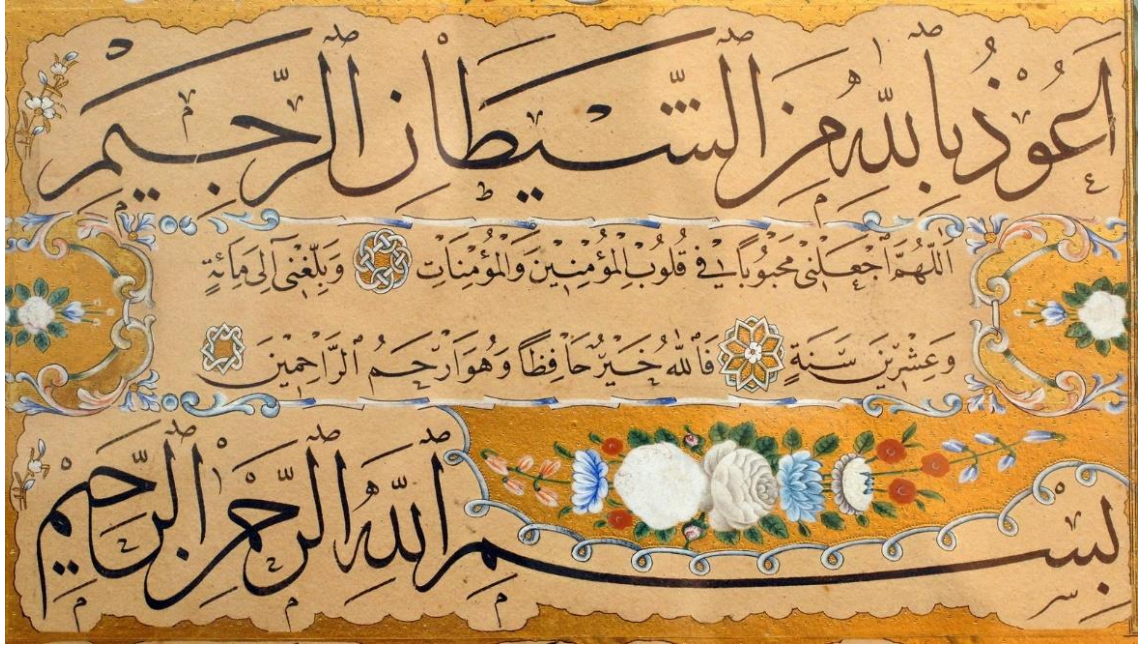 اَعُوْذُ بِاللّٰهِ مِنَ الشَّيْطَانِ الرَّجِيْمِ
اَللّٰهُمَّ اجْعَلْنٖى مَحْبُوْبًا فٖى قُلُوْبِ الْمُؤْمِنٖيْنَ وَالْمُؤْمِنَاتِ وَبَلِّغْنٖى اِلٰى مِائَةٍ
وَعِشْرٖيْنَ سَنَةٍ فَاللّٰهُ خَيْرٌ حَافِظًا وَهُوَ اَرْحَمُ الرَّاحِمٖيْنَ
بِسْمِ اللّٰهِ الرَّحْمٰنِ الرَّحٖيْمِ